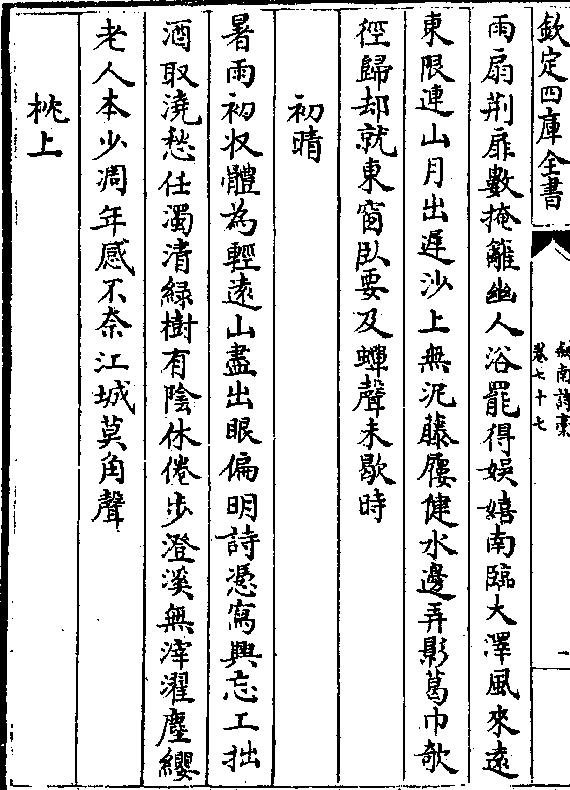 欽定四庫全書
劍南詩稾
卷七十七
一
雨扇荆扉數掩籬幽人浴罷得娛嬉南臨大澤風來逺
東限連山月出遲沙上無泥藤屨健水邊弄影葛巾攲
徑歸却就東窗臥要及蟬聲未歇時
初晴
暑雨初收體為輕逺山盡出眼偏明詩憑寫興忘工拙
酒取澆愁任濁清緑樹有陰休倦步澄溪無滓濯塵纓
老人本少凋年感不奈江城莫角聲
枕上